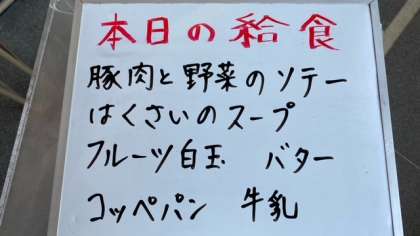 本日の給食
豚肉と野菜のソテー
はくさいのスープ
フルーツ白玉　バター
コッペパン　牛乳